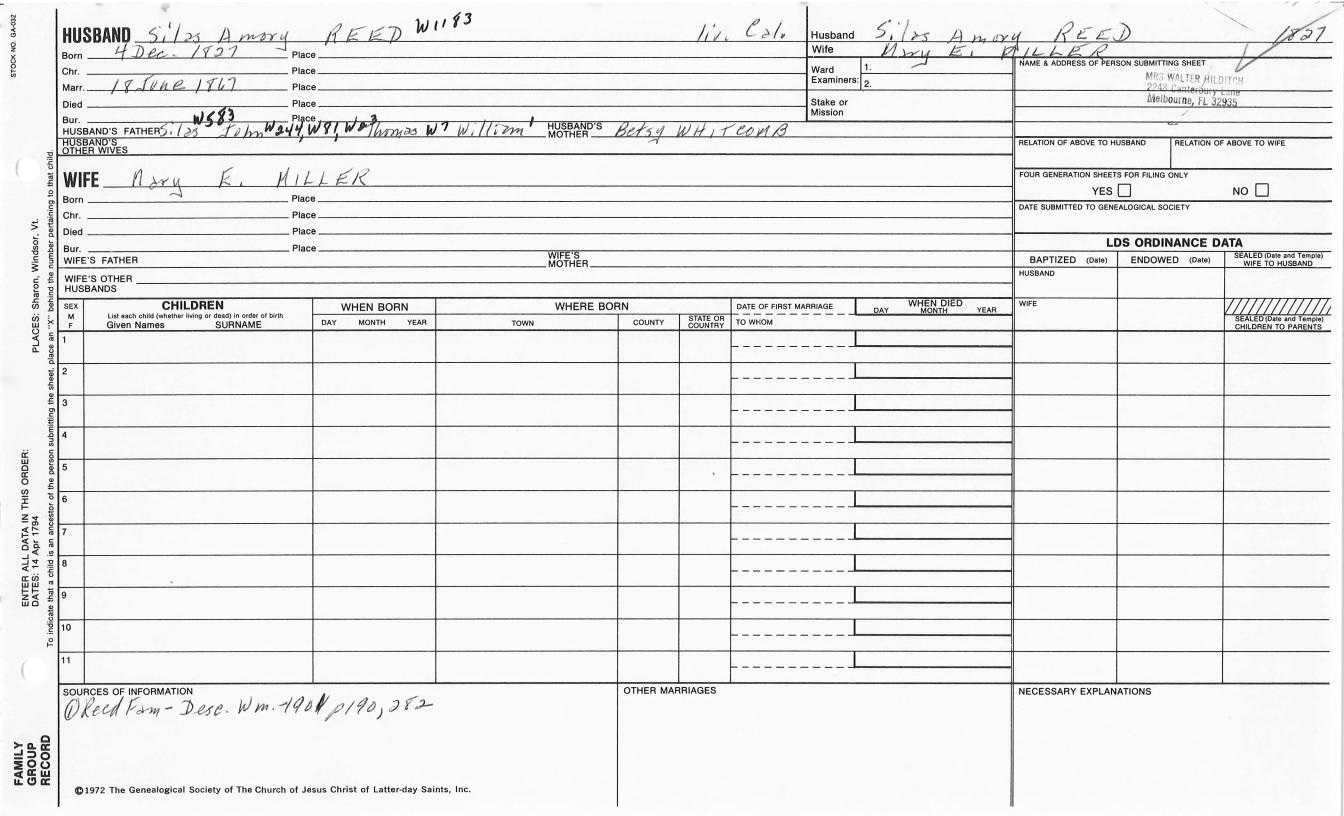 STOCK NO. GA-032
HUSBAND Silas Amory REED W1183 liv. Cal.
Born 4 Dec. 1827 Place
Chr. Place
Marr. 18 June 1867 Place
Died Place
Bur. Place
HUSBAND'S FATHER Silas W583 John W244, W81, W23 Thomas W7 William 1 HUSBAND'S MOTHER Betsy WHITCOMB
HUSBAND'S OTHER WIVES
WIFE Mary E. MILLER
Born Place
Chr. Place
Died Place
Bur. Place
WIFE'S FATHER WIFE'S MOTHER
WIFE'S OTHER HUSBANDS
Husband Silas Amory REED 1827
Wife Mary E. MILLER
Ward Examiners: 1.
2.
Stake or Mission
NAME & ADDRESS OF PERSON SUBMITTING SHEET
MRS WALTER HILDITCH
2248 Canterbury Lane
Melbourne, FL 32935
RELATION OF ABOVE TO HUSBAND RELATION OF ABOVE TO WIFE
FOUR GENERATION SHEETS FOR FILING ONLY
YES NO
DATE SUBMITTED TO GENEALOGICAL SOCIETY
LDS ORDINANCE DATA
BAPTIZED (Date) ENDOWED (Date) SEALED (Date and Temple) WIFE TO HUSBAND
HUSBAND
WIFE
SEALED (Date and Temple) CHILDREN TO PARENTS
SEX M F
CHILDREN
List each child (whether living or dead) in order of birth
Given Names SURNAME
WHEN BORN
DAY MONTH YEAR
WHERE BORN
TOWN COUNTY STATE OR COUNTRY
DATE OF FIRST MARRIAGE
TO WHOM
WHEN DIED
DAY MONTH YEAR
1
2
3
4
5
6
7
8
9
10
11
SOURCES OF INFORMATION
① Reed Fam - Desc. Wm. -1901 p190, 282
OTHER MARRIAGES
NECESSARY EXPLANATIONS
©1972 The Genealogical Society of The Church of Jesus Christ of Latter-day Saints, Inc.
FAMILY GROUP RECORD
ENTER ALL DATA IN THIS ORDER:
DATES: 14 Apr 1794 PLACES: Sharon, Windsor, Vt.
To indicate that a child is an ancestor of the person submitting the sheet, place an "X" behind the number pertaining to that child.